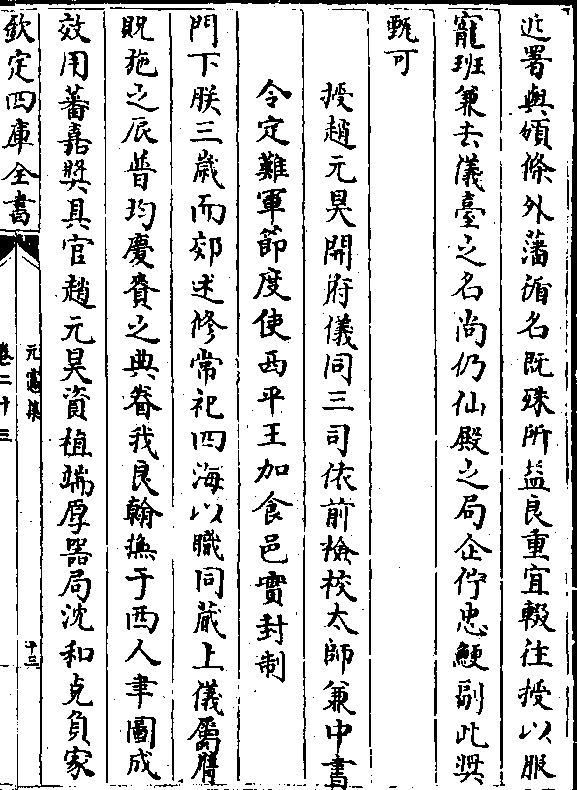 近署與頒條外藩循名既殊所益良重宜輟往授以服
寵班兼去儀臺之名尚仍仙殿之局企佇忠鯁副此㷼
甄可
授趙元昊開府儀同三司依前檢校太師兼中書
令定難軍節度使西平王加食邑實封制
門下朕三歳而郊述修常祀四海以職同蕆上儀屬膺
貺施之辰普均慶賚之典眷我良翰撫于西人聿圖成
效用蕃嘉奬具官趙元昊資植端厚器局沈和克負家
欽定四庫全書
元憲集
卷二十三
十三